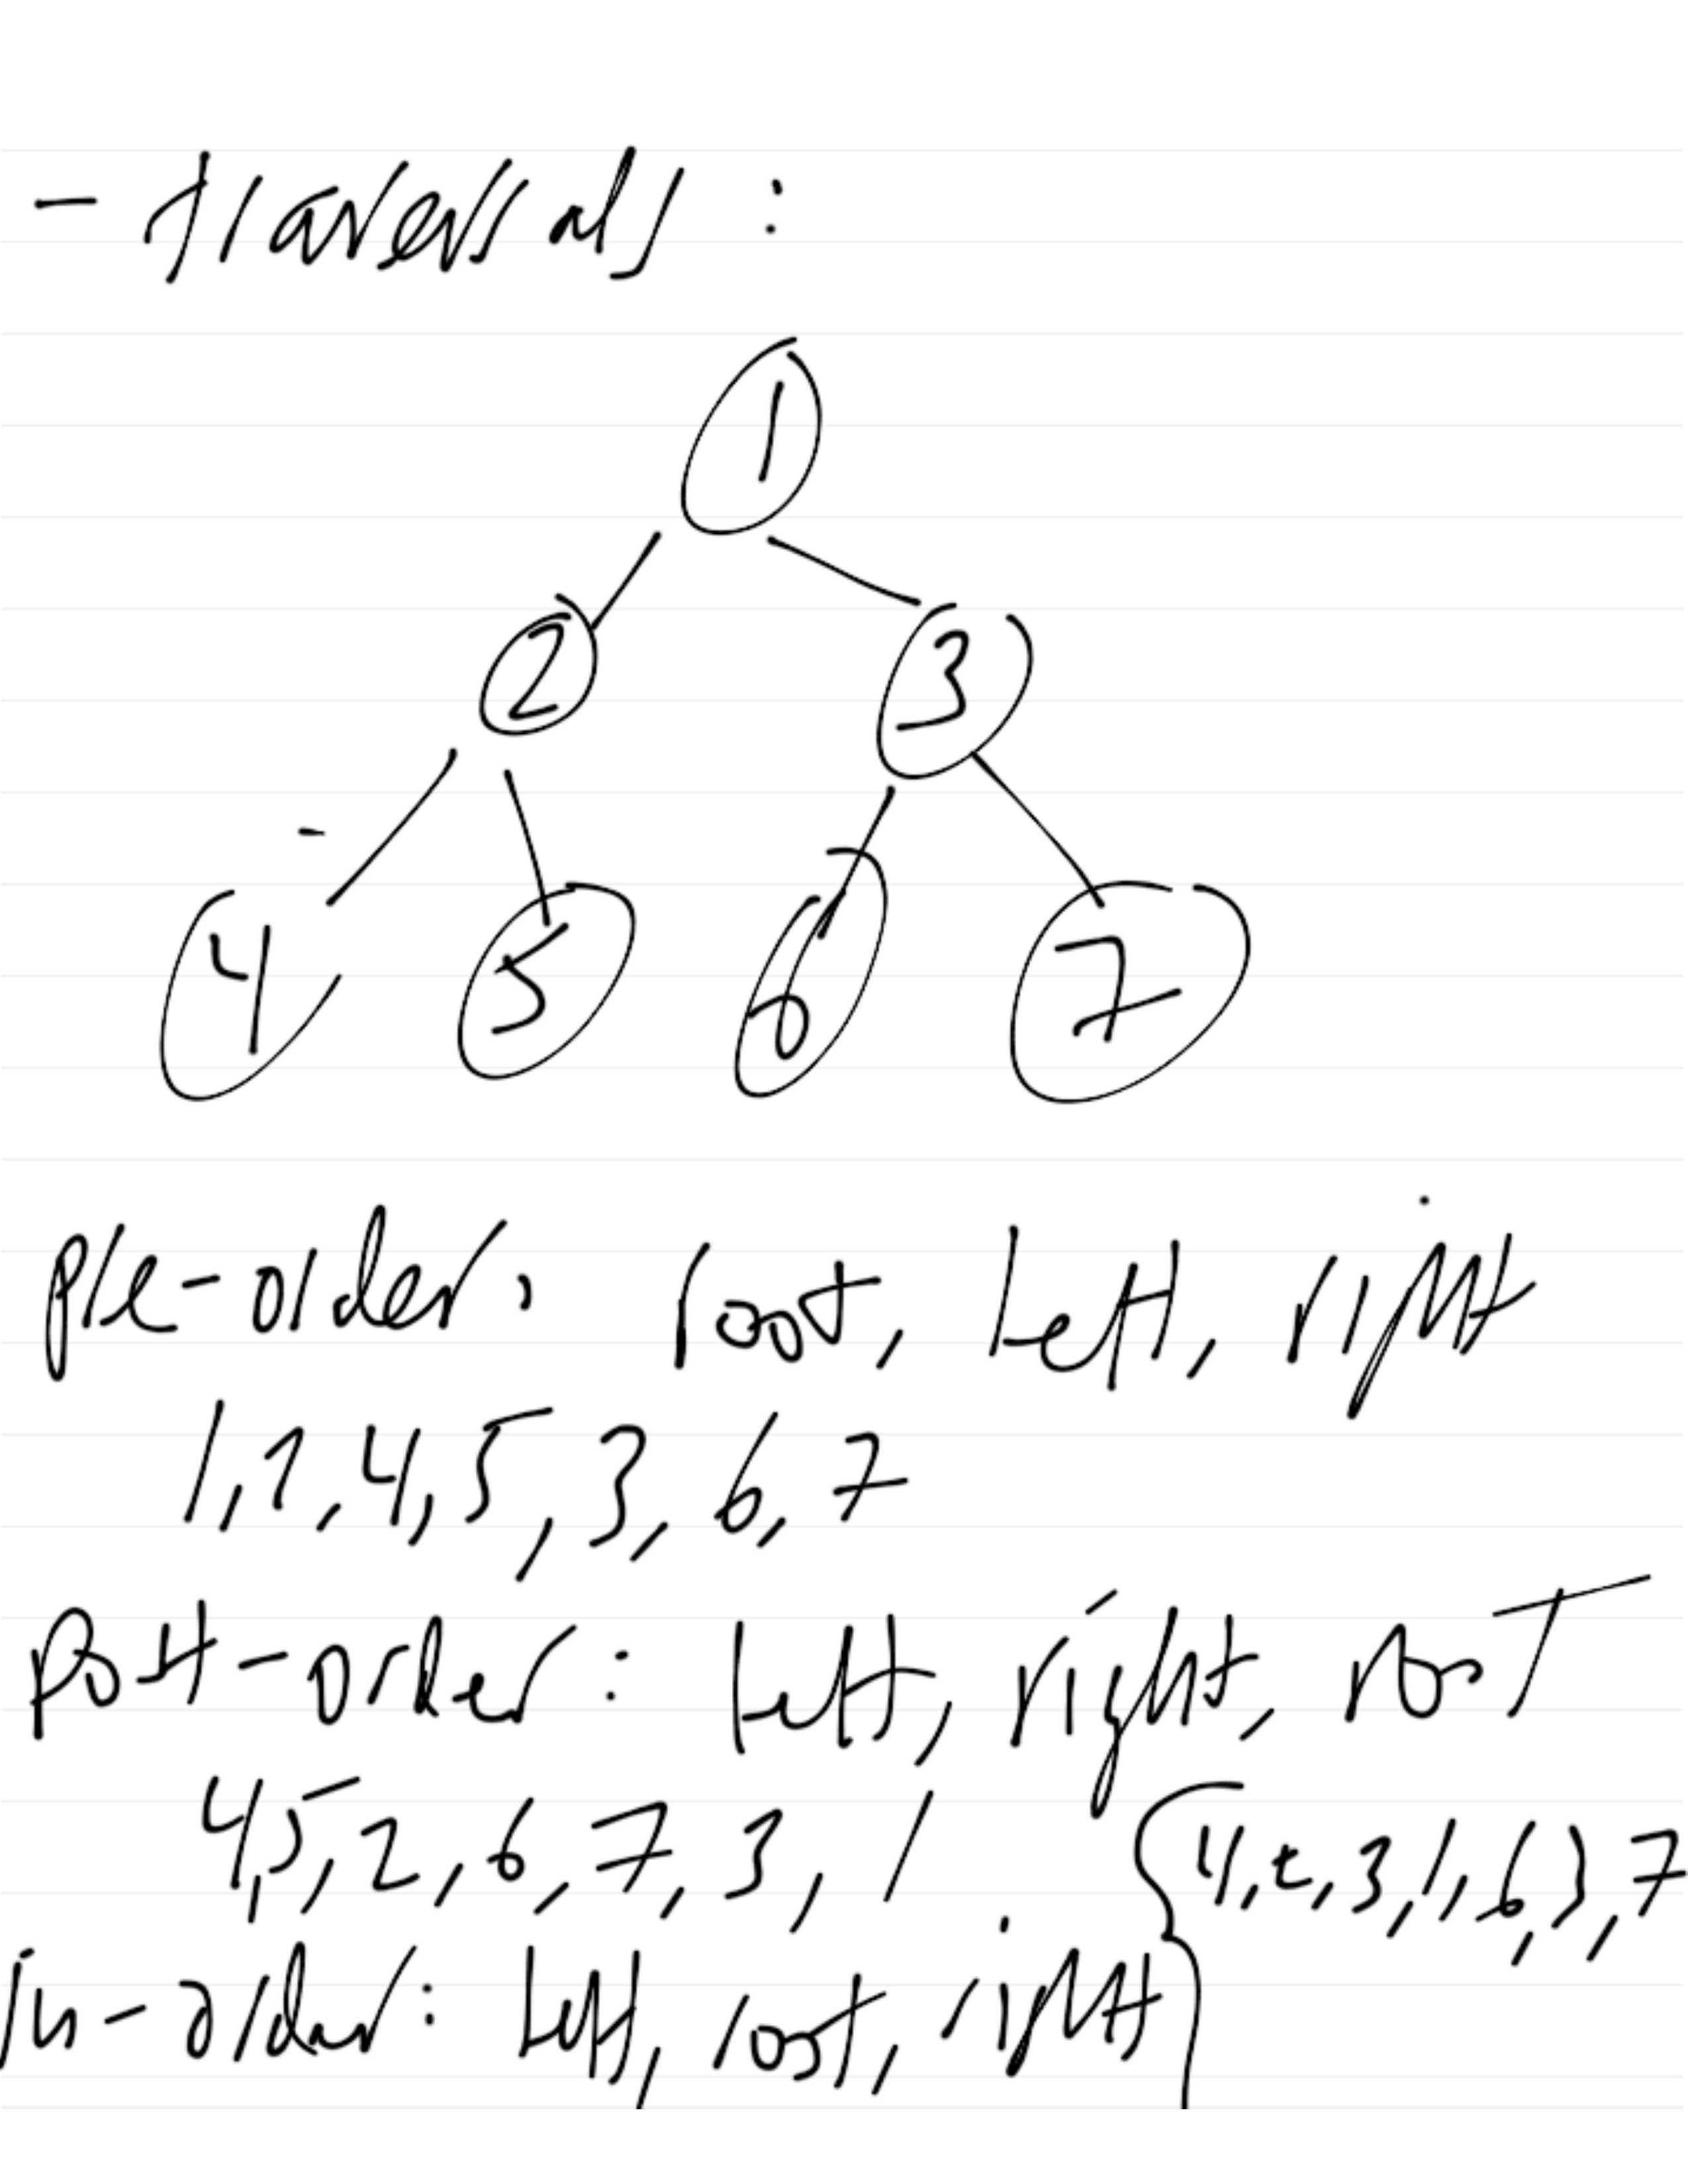 - traversals :
1
2 3
4 5 6 7
pre-order: root, left, right
1, 2, 4, 5, 3, 6, 7
post-order: left, right, root
4, 5, 2, 6, 7, 3, 1
4, 2, 3, 1, 6, 3, 7
in-order: left, root, right